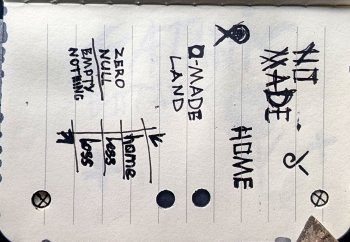 NO
MADE
HOME
O-MADE
LAND
ZERO
NULL
EMPTY
NOTHING
home
less
loss